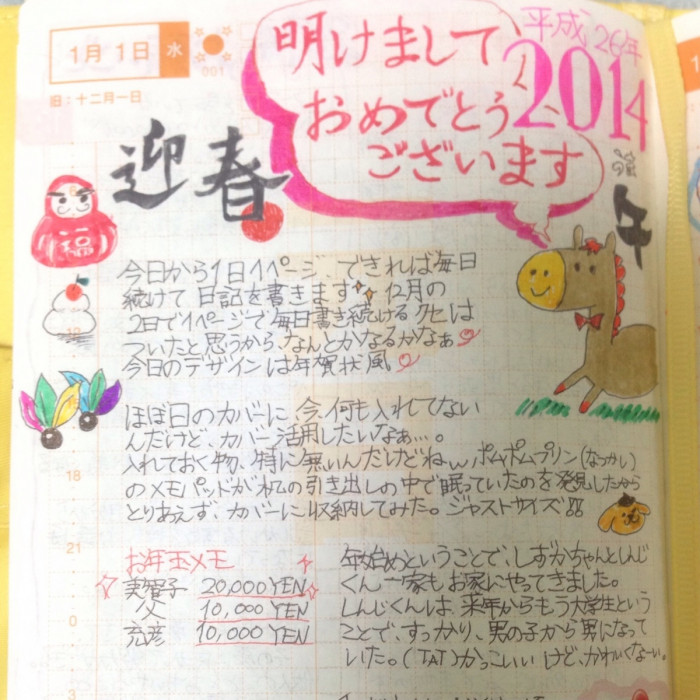 1月1日 水
001
旧：十二月一日
明けまして
おめでとう
ございます
平成26年
2014
迎春
午
福
今日から1日1ページ、できれば毎日
続けて日記を書きます 12月の
2日で1ページで毎日書き続けるクセは
ついたと思うから、なんとかなるかなぁ
今日のデザインは年賀状風
ほぼ日のカバーに、今、何も入れてない
んだけど、カバー活用したいなぁ…。
入れておく物、特に無いんだけどねw ポムポムプリン(なつかしい)
のメモパッドが机の引き出しの中で眠っていたのを発見したから
とりあえず、カバーに収納してみた。ジャストサイズ
お年玉メモ
20,000YEN
父 10,000YEN
充彦 10,000YEN
年始めということで、しずかちゃんとしんじ
くん一家もお家にやってきました。
しんじくんは来年からもう大学生という
ことで、すっかり、男の子から男になって
いた。(TAT)かっこいいけど、かわいくなーい。
6
12
18
21
0
3